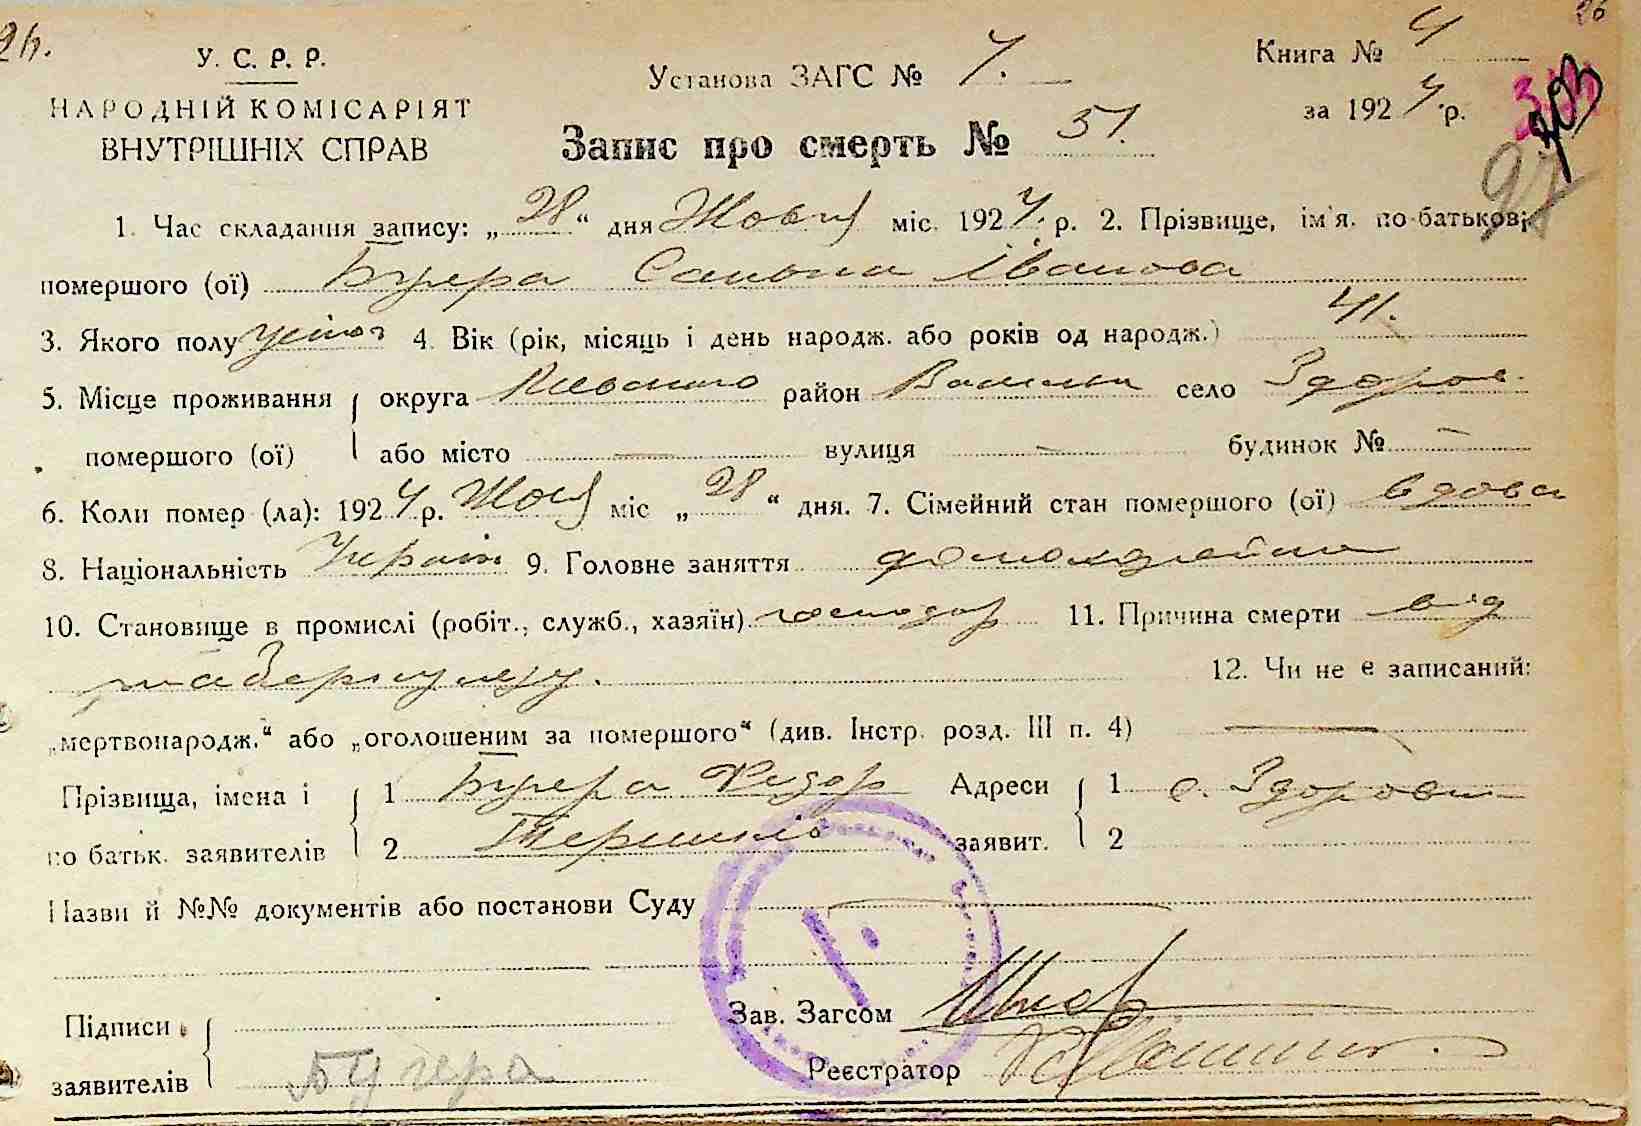 26.
26
У. С. Р. Р.
НАРОДНІЙ КОМІСАРІЯТ
ВНУТРІШНІХ СПРАВ
Установа ЗАГС № 4.
Книга № 4
за 192 4 р.
Запис про смерть № 51.
1. Час складання запису: „ 28 “ дня Жовт міс. 192 4. р. 2. Прізвище, ім'я, по-батькові
помершого (ої) Бугера Іванова
3. Якого полу жіноч 4. Вік (рік, місяць і день народж. або років од народж.) 41.
5. Місце проживання округа район Васильк село Здоров.
помершого (ої) або місто — вулиця — будинок № —
6. Коли помер (ла): 192 4 р. Жов міс „ 28 “ дня. 7. Сімейний стан помершого (ої) вдова
8. Національність Україн 9. Головне заняття
10. Становище в промислі (робіт., служб., хазяїн) господар 11. Причина смерти від
туберкульозу.
12. Чи не є записаний:
„мертвонародж.“ або „оголошеним за помершого“ (див. Інстр. розд. III п. 4) —
Прізвища, імена і 1 Бугера Федор Адреси 1 с. Здоровка
по батьк. заявителів 2 заявит. 2
Назви й №№ документів або постанови Суду
Зав. Загсом
Підписи
заявителів Бугера
Реєстратор